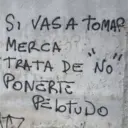 SI VAS A TOMAR
MERCA
TRATA DE "NO"
PONERTE
PELOTUDO